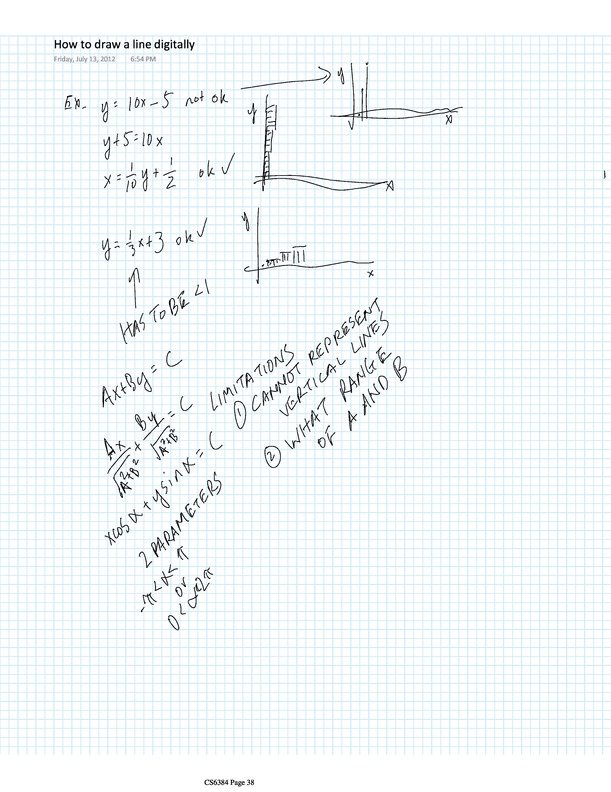 How to draw a line digitally
Friday, July 13, 2012 6:54 PM
Ex. y = 10x - 5 not ok
y + 5 = 10x
x = 1/10 y + 1/2 ok ✓
y = 1/3 x + 3 ok ✓
HAS TO BE < 1
y
x
y
x
y
x
Ax + By = C
Ax/√A²+B² + By/√A²+B² = C
x cos α + y sin α = C
2 PARAMETERS
-π < α < π
or
0 < α < 2π
LIMITATIONS
① CANNOT REPRESENT
VERTICAL LINES
② WHAT RANGE
OF A AND B
CS6384 Page 38